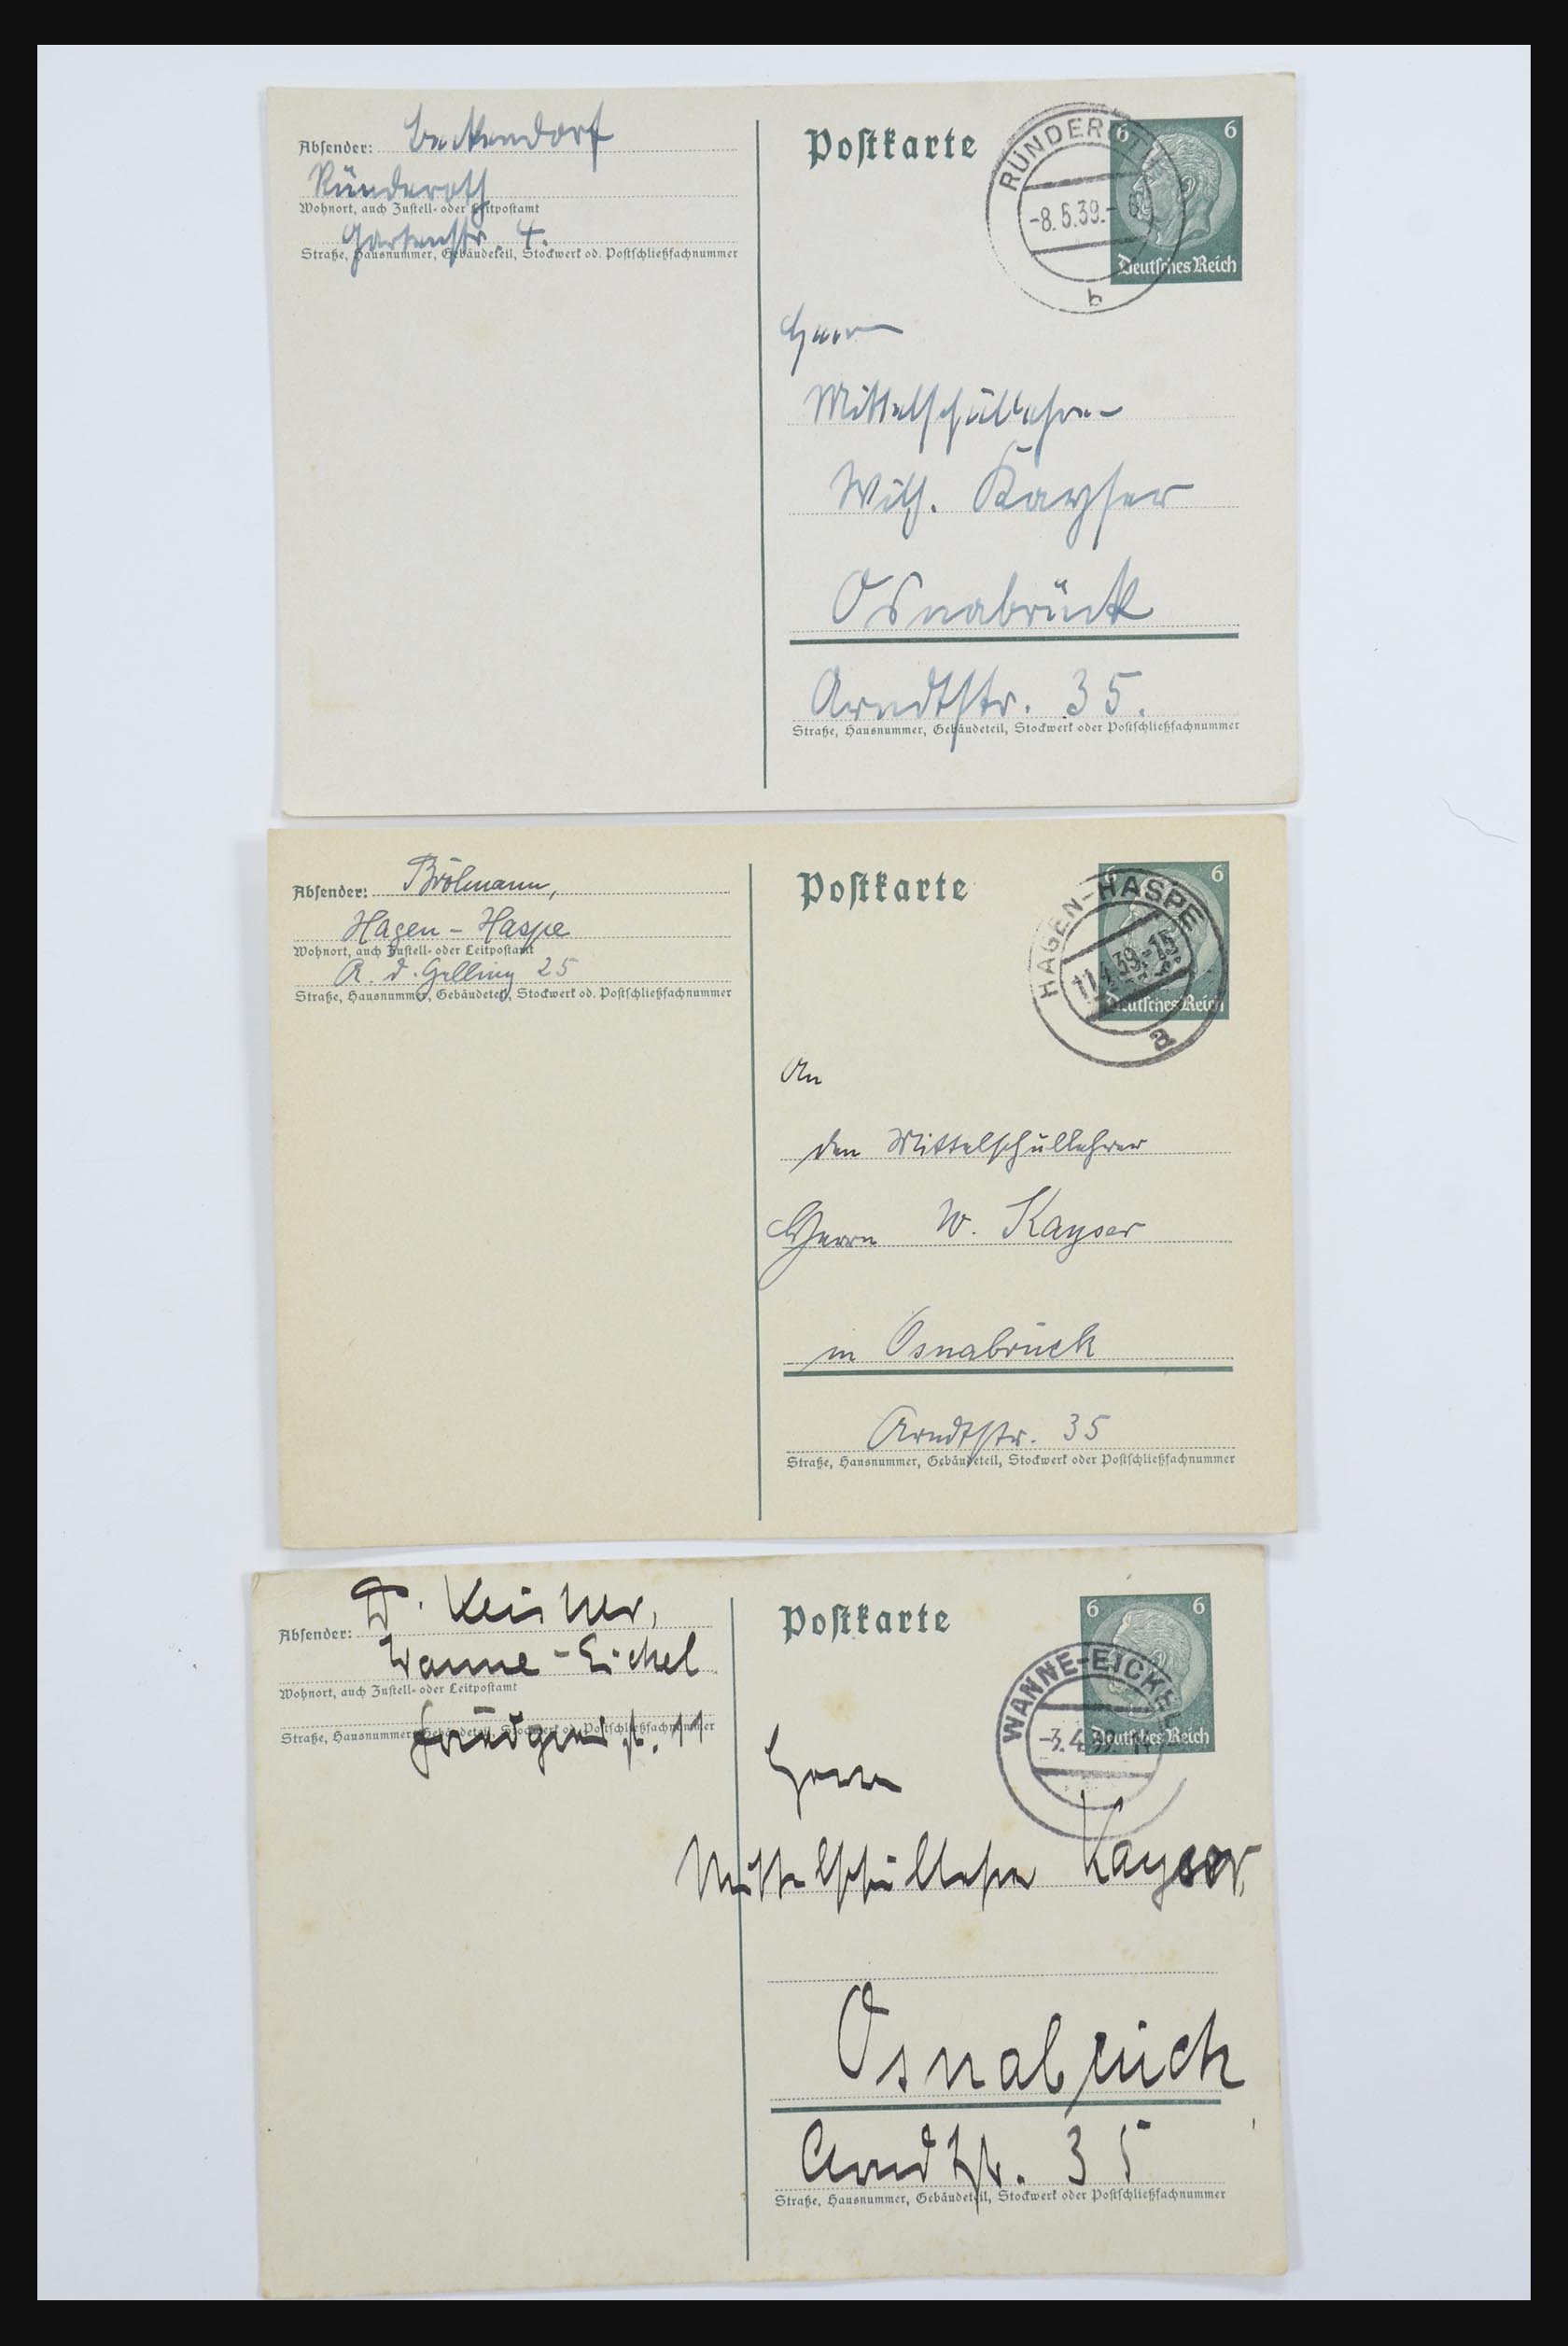 Absender: Beckendorf
Ründeroth
Wohnort, auch Zustell- oder Leitpostamt
Gartenstr. 4.
Straße, Hausnummer, Gebäudeteil, Stockwerk od. Postschließfachnummer
Postkarte
6 6
Deutsches Reich
RÜNDEROTH
-8.5.39.-
b
Herrn
Mittelschullehrer
Wilh. Kayser
Osnabrück
Arndtstr. 35.
Straße, Hausnummer, Gebäudeteil, Stockwerk oder Postschließfachnummer
Absender: Brölmann,
Hagen-Haspe
Wohnort, auch Zustell- oder Leitpostamt
A. d. Gelling 25
Straße, Hausnummer, Gebäudeteil, Stockwerk od. Postschließfachnummer
Postkarte
6 6
Deutsches Reich
HAGEN-HASPE
11.4.39.-15
a
An
den Mittelschullehrer
Herrn W. Kayser
in Osnabrück
Arndtstr. 35
Straße, Hausnummer, Gebäudeteil, Stockwerk oder Postschließfachnummer
Absender: Dr.
Wanne-Eickel
Wohnort, auch Zustell- oder Leitpostamt
11
Straße, Hausnummer, Gebäudeteil, Stockwerk od. Postschließfachnummer
Postkarte
6 6
Deutsches Reich
WANNE-EICKEL
-3.4.39.
Herrn
Mittelschullehrer Kayser,
Osnabrück
Arndtstr. 35
Straße, Hausnummer, Gebäudeteil, Stockwerk oder Postschließfachnummer